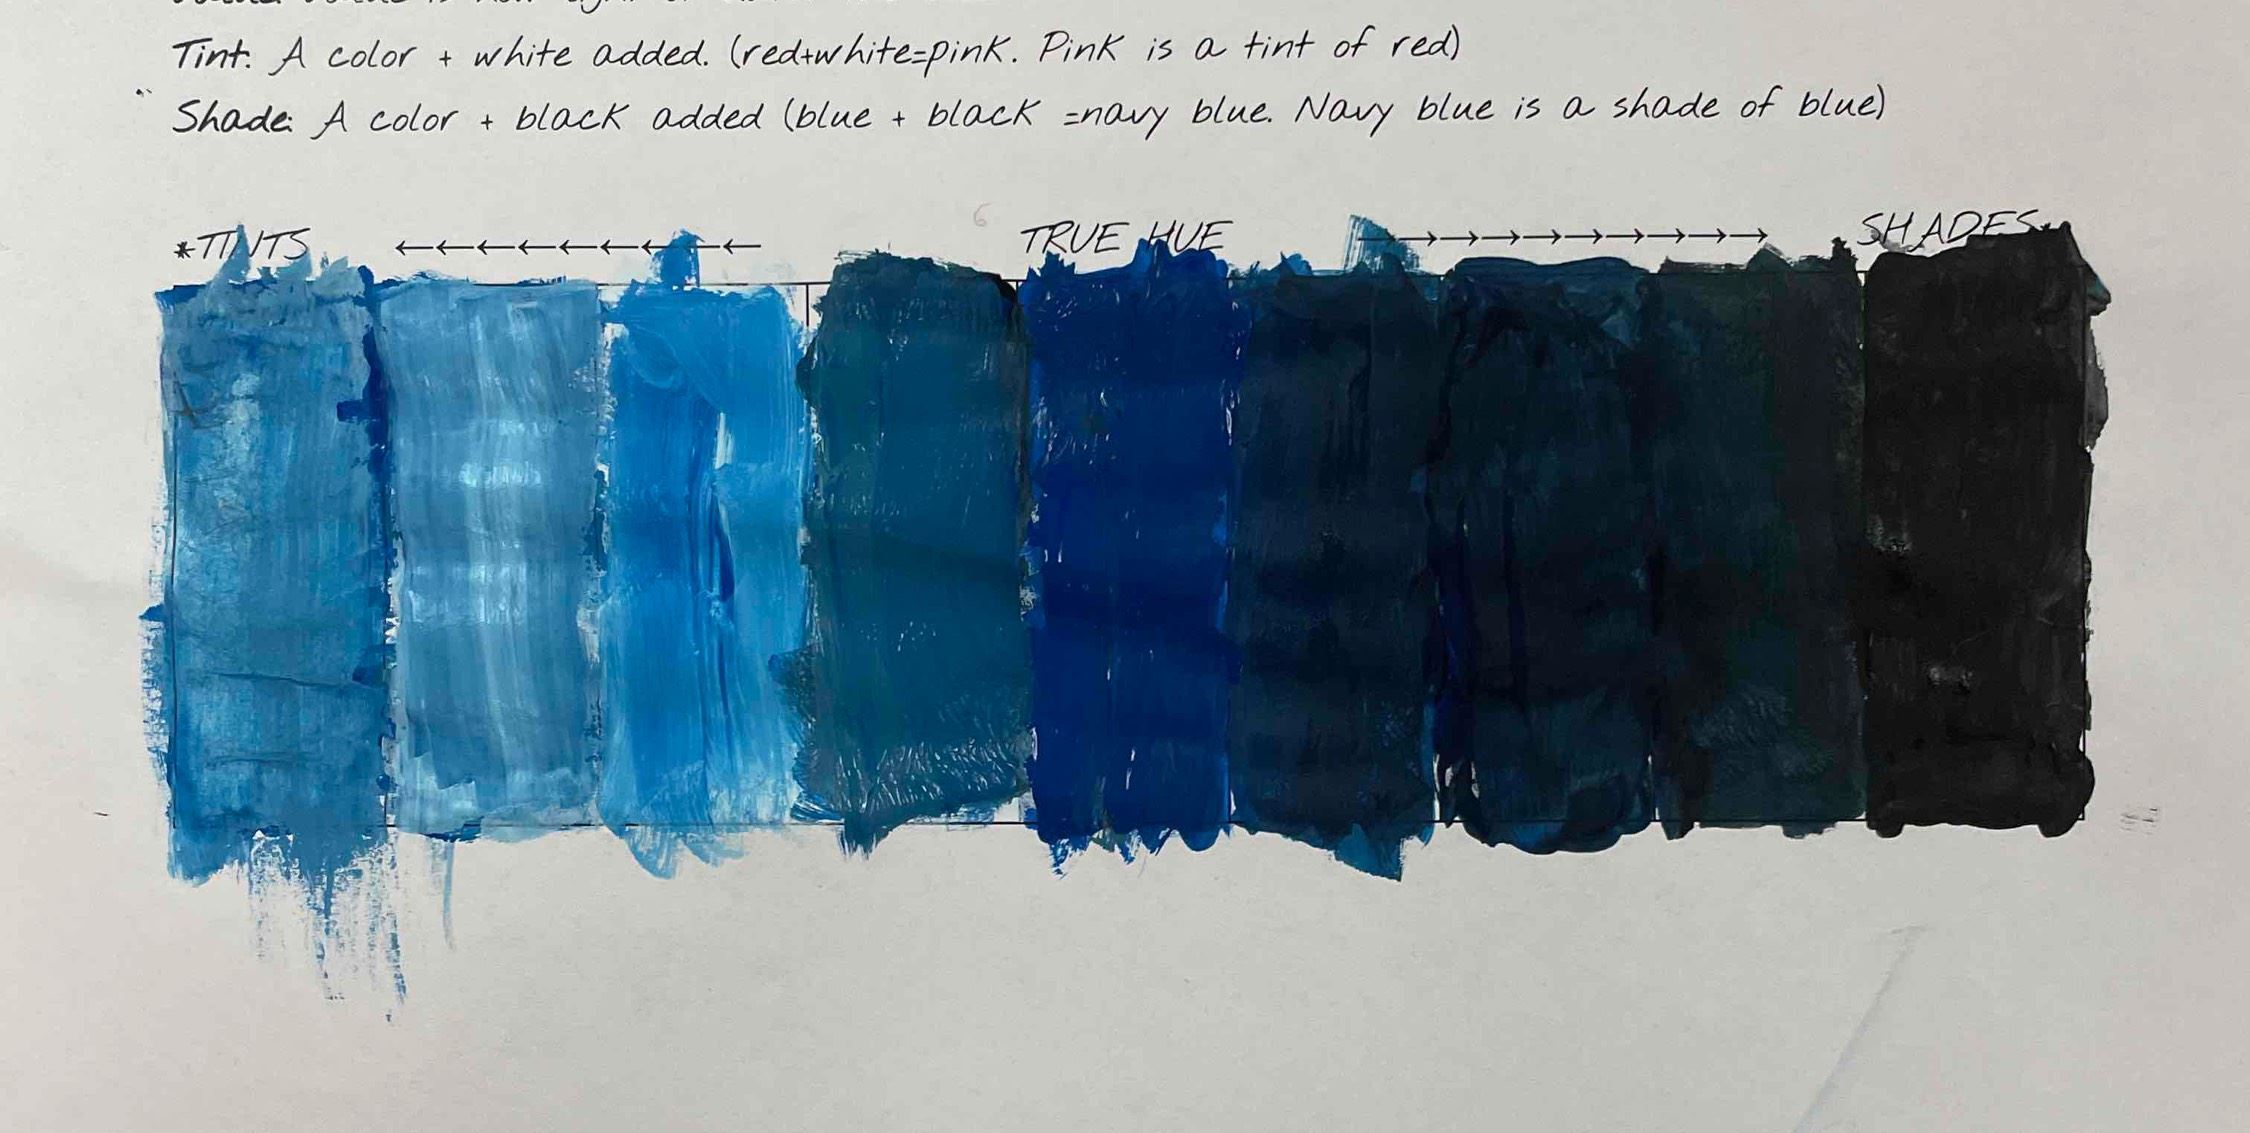 Tint: A color + white added. (red+white=pink. Pink is a tint of red)
Shade: A color + black added (blue + black =navy blue. Navy blue is a shade of blue)
*TINTS ←←←←←←←←← TRUE HUE →→→→→→→→→→ SHADES